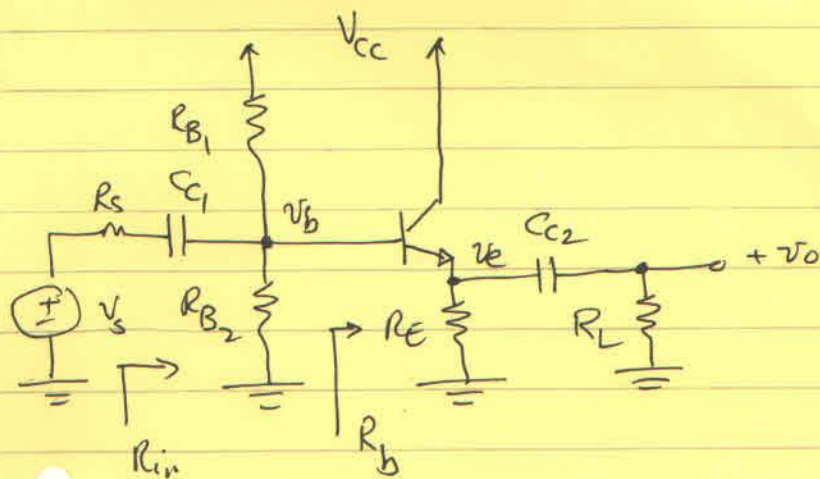 V_CC
R_B1
C_C1
R_S
v_b
C_C2
v_e
+ v_o
+
-
v_s
R_B2
R_E
R_L
R_in
R_b